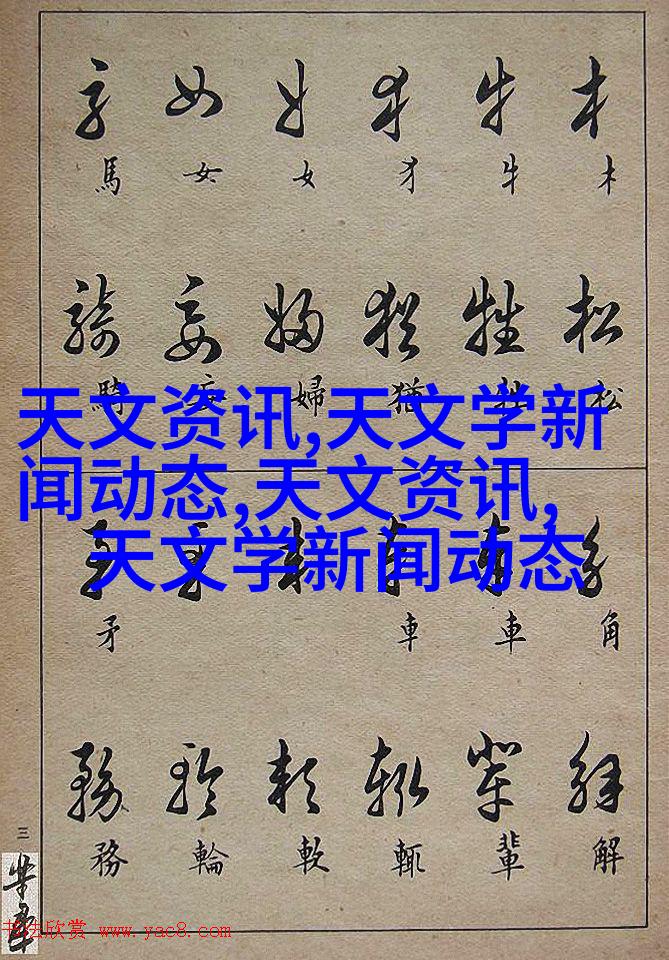 馬 女 女 犭 牛 木
騎 妄 婦 猶 牲 松
天文资讯,天文学新
闻动态,天文资讯,
天文学新闻动态
矛 車 車 角
務 輪 軟 輒 輩 解
三
书法欣赏 www.yac8.com